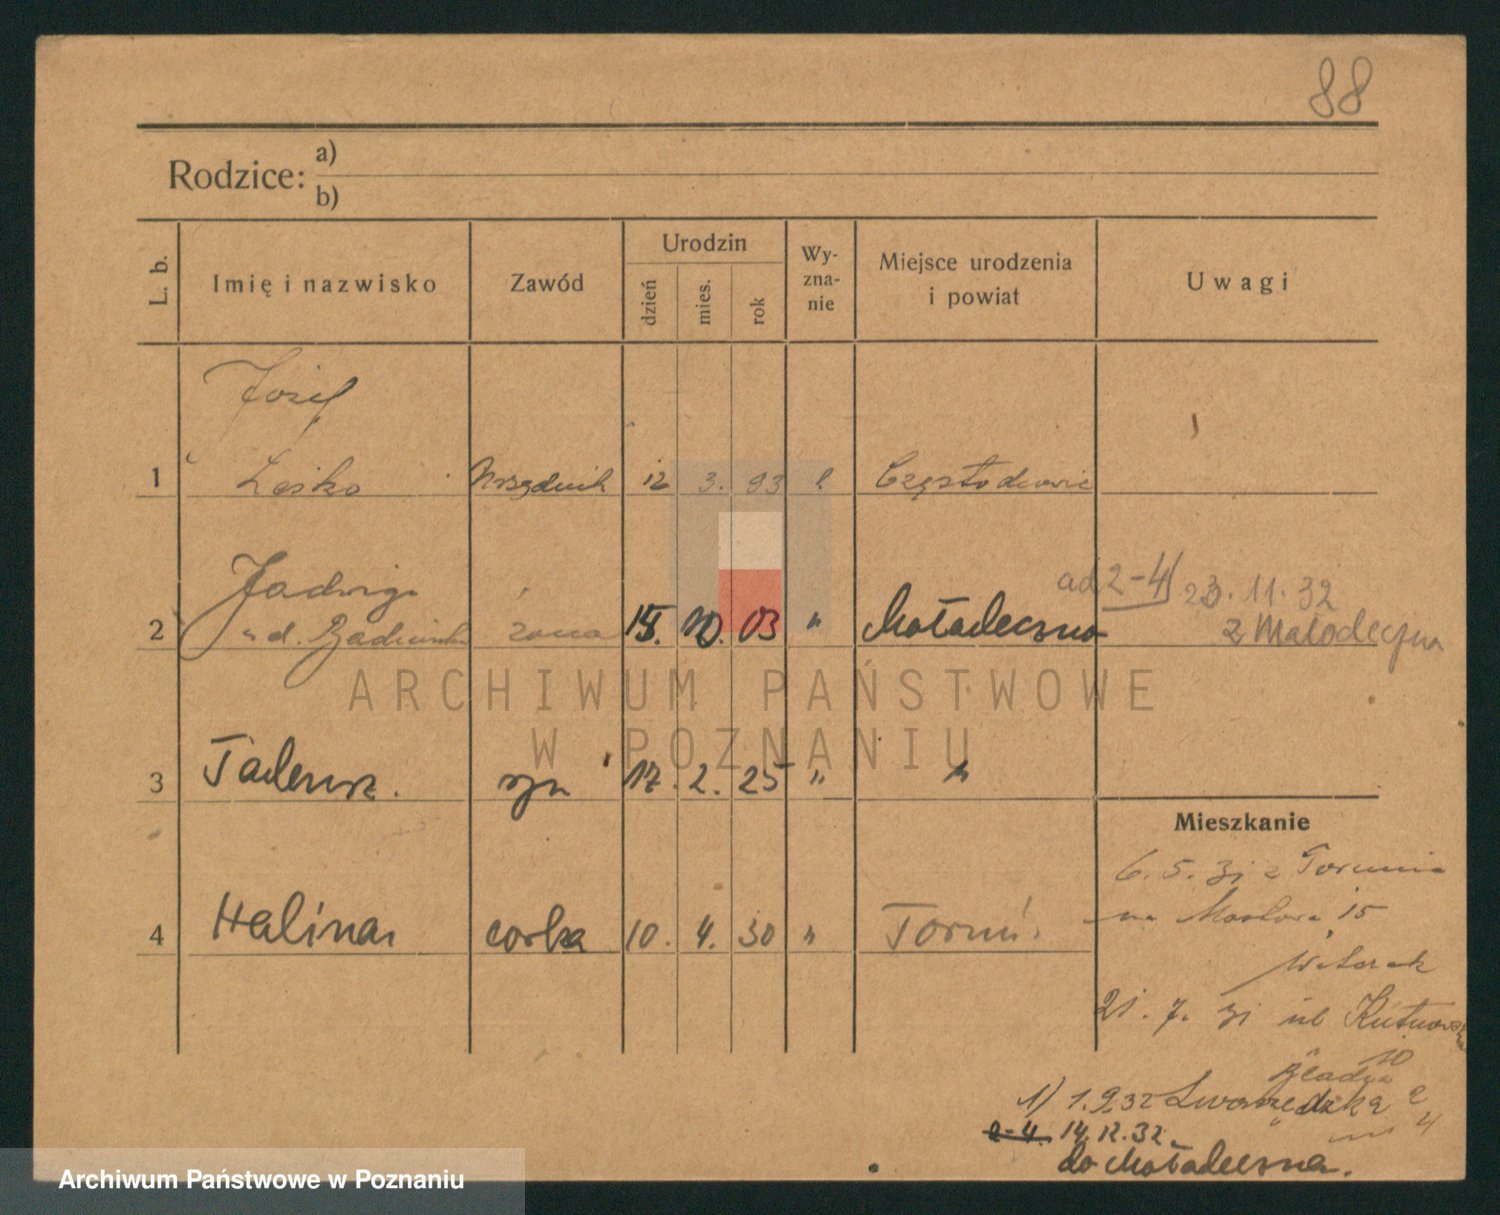 88
Rodzice: a)
b)
L. b. Imię i nazwisko Zawód Urodzin dzień mies. rok Wy-zna-nie Miejsce urodzenia i powiat Uwagi
Józef
1 Leśko Urzędnik 12 3. 93 Częstochowie
Jadwiga
ad 2-4/ 23.11.32
2 żona 10. 03 " Mołodeczno z Małodeczna
3 Tadeusz. syn 17. 2. 25 " "
Mieszkanie
6. 5. 31 z Torunia
4 Halina córka 10. 4. 30 " Toruń.
na 15
21. 7. 31 ul Kutnowska
10
1) 1.9.32
2-4. 14.12.32
do Mołodeczna.
ARCHIWUM PAŃSTWOWE
W POZNANIU
Archiwum Państwowe w Poznaniu